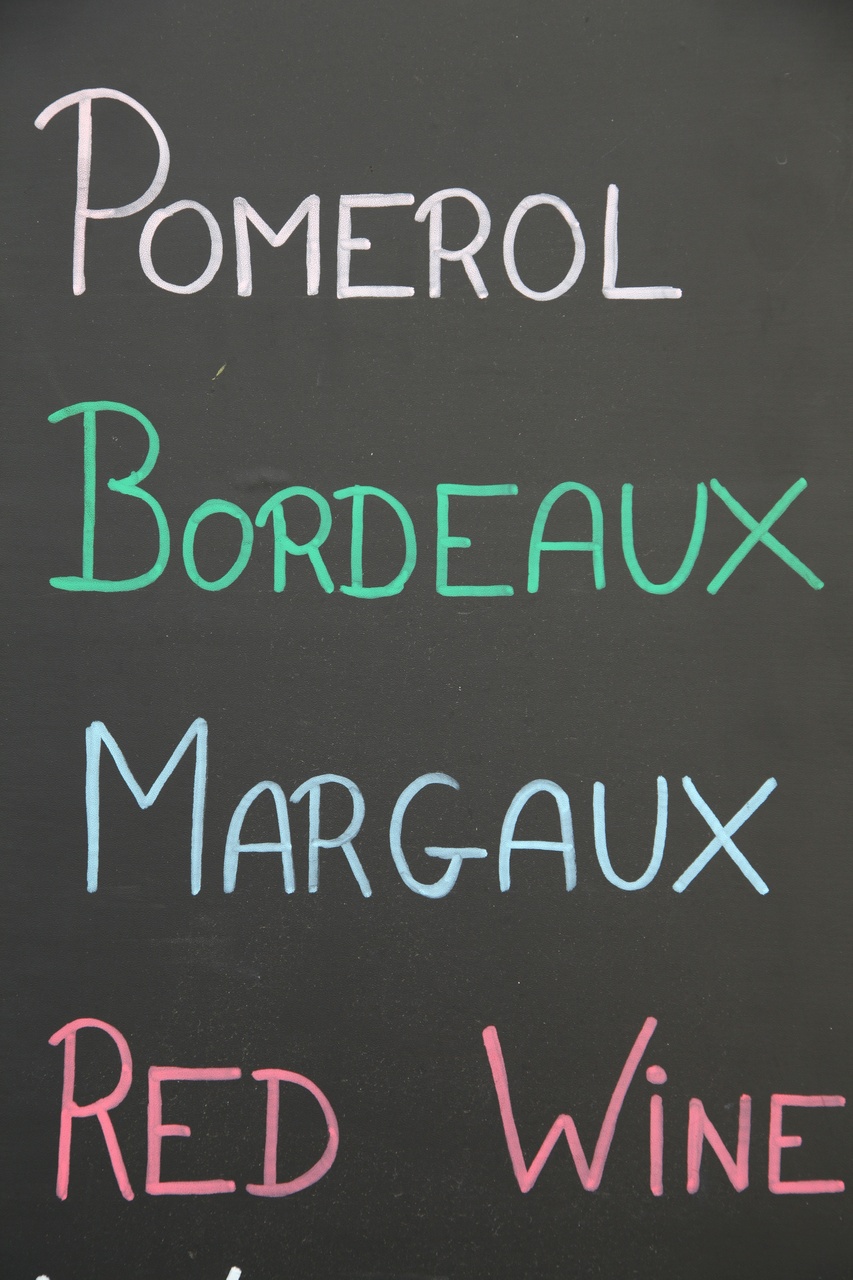 POMEROL
BORDEAUX
MARGAUX
RED WiNE